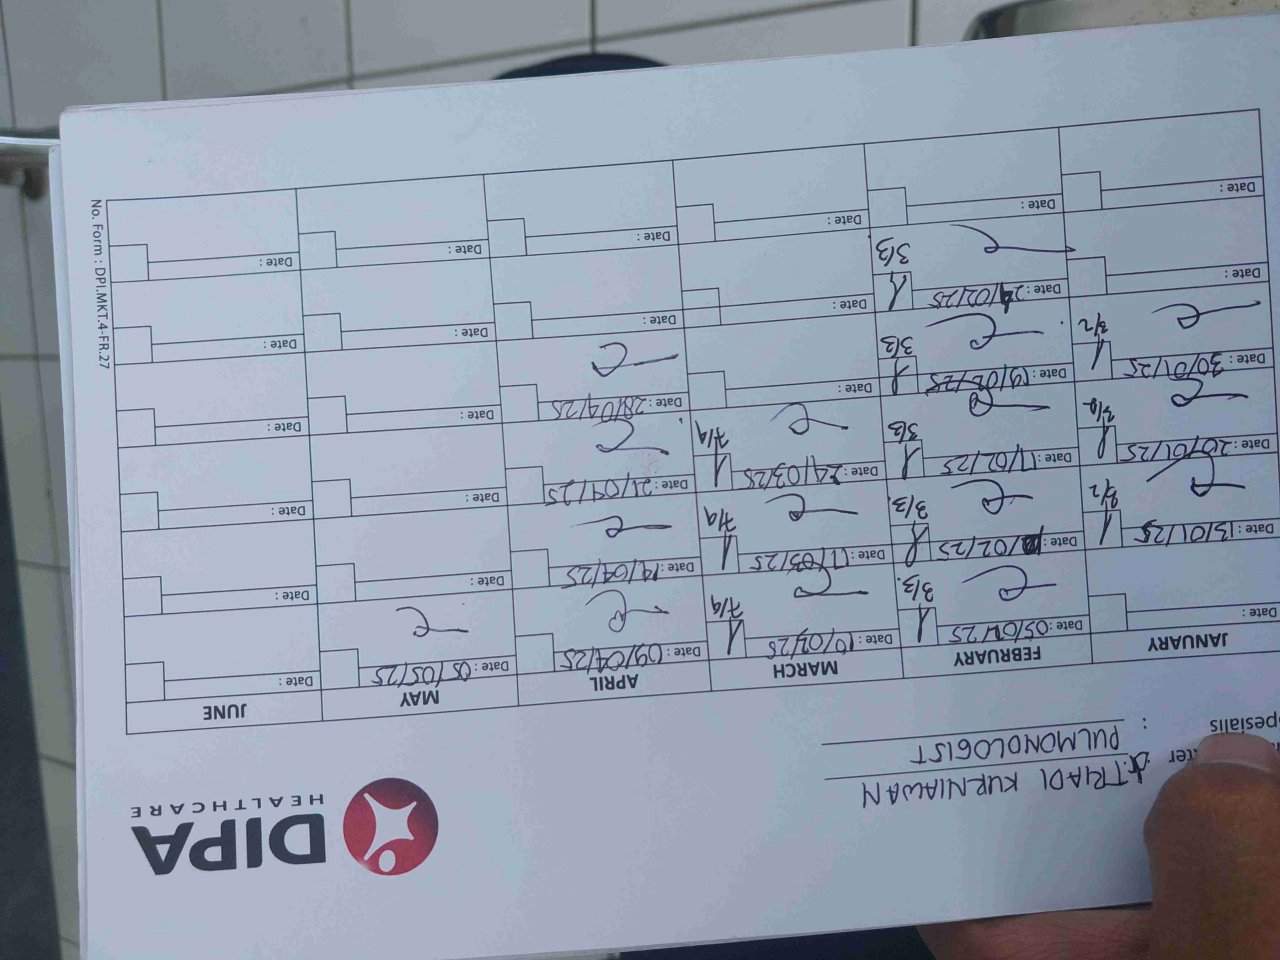 DIPA
HEALTHCARE
ter dr. TRIADI KURNIAWAN
pesialis : PULMONOLOGIST
JANUARY FEBRUARY MARCH APRIL MAY JUNE
Date : Date : 05/02/25 Date : 10/03/25 Date : 09/04/25 Date : 05/05/25 Date :
3/3 7/4
Date : 13/01/25 Date : /02/25 Date : 17/03/25 Date : 14/04/25 Date : Date :
3/2 3/3 7/4
Date : 20/01/25 Date : 17/02/25 Date : 24/03/25 Date : 21/04/25 Date : Date :
3/2 3/3 7/4
Date : 30/01/25 Date : 19/02/25 Date : Date : 28/04/25 Date : Date :
3/2 3/3
Date : Date : 24/02/25 Date : Date : Date : Date :
3/3
Date : Date : Date : Date : Date : Date :
No. Form : DPI.MKT.4-FR.27